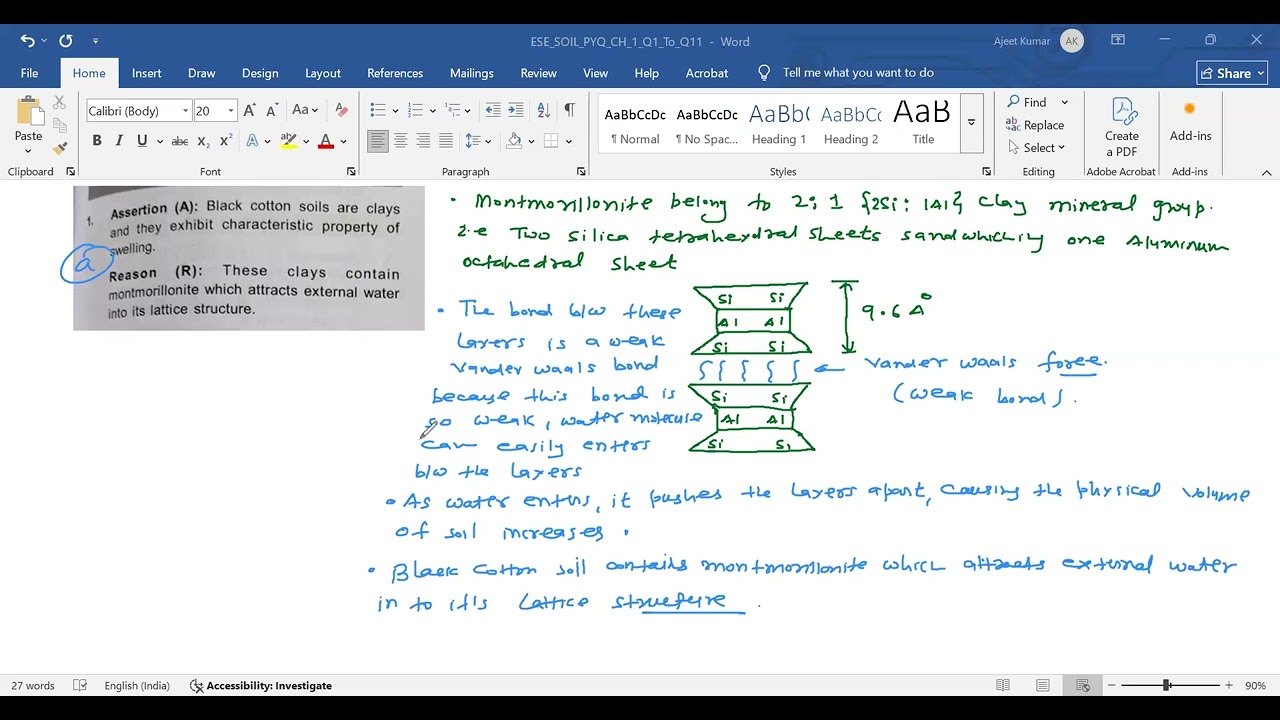 ESE_SOIL_PYQ_CH_1_Q1_To_Q11 - Word
Ajeet Kumar AK
File Home Insert Draw Design Layout References Mailings Review View Help Acrobat Tell me what you want to do Share
Calibri (Body) 20
Paste
AaBbCcDc AaBbCcDc AaBbC AaBbCc AaB
¶ Normal ¶ No Spac... Heading 1 Heading 2 Title
Find
Replace
Select
Create a PDF
Add-ins
Clipboard Font Paragraph Styles Editing Adobe Acrobat Add-ins
1. Assertion (A): Black cotton soils are clays
and they exhibit characteristic property of
swelling.
a
Reason (R): These clays contain
montmorillonite which attracts external water
into its lattice structure.
• Montmorillonite belong to 2:1 {2Si: 1Al} clay mineral group.
i.e Two silica tetrahedral sheets sandwhiching one Aluminum
octahedral sheet
• The bond b/w these
layers is a weak
vander waals bond
because this bond is
so weak, water molecule
can easily enters
b/w the layers
Si Si
Al Al
Si Si
9.6 A°
vander waals force.
(weak bond).
Si Si
Al Al
Si Si
• As water enters, it pushes the layers apart, causing the physical volume
of soil increases.
• Black cotton soil contails montmorillonite which attracts external water
in to it's lattice structure.
27 words English (India) Accessibility: Investigate 90%